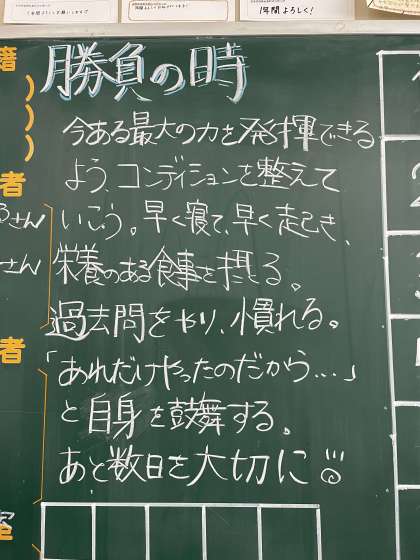 1年間よろしく!
勝負の時
今ある最大の力を発揮できる
よう、コンディションを整えて
いこう。早く寝て、早く起き、
栄養のある食事を摂る。
過去問をやり、慣れる。
「あれだけやったのだから…」
と自身を鼓舞する。
あと数日を大切に
者
さん
さん
者